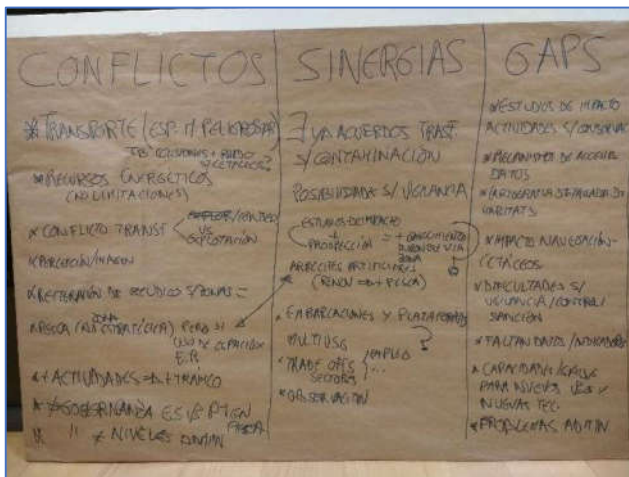 CONFLICTOS
* TRANSPORTE (ESP. M PELIGROSAS)
TB COLISIONES + RUIDO
S/CETÁCEOS?
* RECURSOS ENERGÉTICOS
(NO LIMITACIONES)
* CONFLICTO TRANSF
VS
EXPLOTACIÓN
* PERCEPCIÓN/IMAGEN
* REITERACIÓN DE ESTUDIOS S/ZONAS =
ZONA
* PESCA (NO ESTRATÉGICA) PERO SI
E.P.
* + ACTIVIDADES => + TRÁFICO
* ≠ GOBERNANZA ES & PT EN
PESCA
" " ≠ NIVELES
SINERGIAS
∃ YA ACUERDOS TRASF
S/CONTAMINACIÓN
POSIBILIDADES S/ VIGILANCIA
ESTUDIOS DE IMPACTO
+
PROSPECCIÓN = + CONOCIMIENTO
ZONA
ARRECIFES ARTIFICIALES
(RENOV => + PESCA)
* EMBARCACIONES Y PLATAFORMAS
MULTIUSO ?
* TRADE OFFS { EMPLEO
SECTORES ...
* OBSERVACIÓN
GAPS
* ESTUDIOS DE IMPACTO
ACTIVIDADES S/CONSERVAC
* MECANISMOS DE ACCESO
DATOS
* CARTOGRAFIA DETALLADA DE
HABITATS
* IMPACTO NAVEGACIÓN-
CETÁCEOS
* DIFICULTADES S/
VIGILANCIA/CONTROL/
SANCIÓN
* FALTAN DATOS/INDICADORES
* CAPACIDADES
PARA NUEVOS USOS Y
NUEVAS TEC
* PROBLEMAS ADMIN